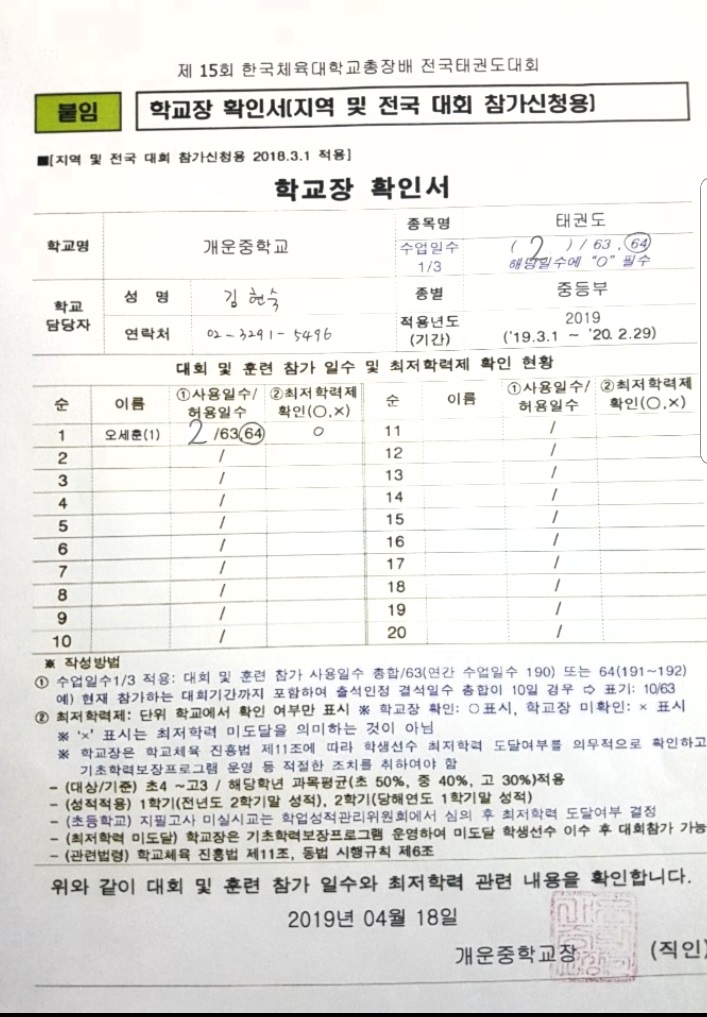 제 15회 한국체육대학교총장배 전국태권도대회
붙임 학교장 확인서(지역 및 전국 대회 참가신청용)
■[지역 및 전국 대회 참가신청용 2018.3.1 적용]
학교장 확인서
학교명 개운중학교 종목명 태권도
수업일수 1/3 ( 2 ) / 63 , 64
해당일수에 "O" 필수
학교 담당자 성 명 김현숙 종별 중등부
연락처 02-3291-5496 적용년도 (기간) 2019
('19.3.1 ~ '20. 2.29)
대회 및 훈련 참가 일수 및 최저학력제 확인 현황
순 이름 ①사용일수/허용일수 ②최저학력제 확인(○,×) 순 이름 ①사용일수/허용일수 ②최저학력제 확인(○,×)
1 오세훈(1) 2 /63,64 ○ 11 /
2 / 12 /
3 / 13 /
4 / 14 /
5 / 15 /
6 / 16 /
7 / 17 /
8 / 18 /
9 / 19 /
10 / 20 /
※ 작성방법
① 수업일수1/3 적용: 대회 및 훈련 참가 사용일수 총합/63(연간 수업일수 190) 또는 64(191~192)
예) 현재 참가하는 대회기간까지 포함하여 출석인정 결석일수 총합이 10일 경우 ⇨ 표기: 10/63
② 최저학력제: 단위 학교에서 확인 여부만 표시 ※ 학교장 확인: ○표시, 학교장 미확인: × 표시
※ '×' 표시는 최저학력 미도달을 의미하는 것이 아님
※ 학교장은 학교체육 진흥법 제11조에 따라 학생선수 최저학력 도달여부를 의무적으로 확인하고
기초학력보장프로그램 운영 등 적절한 조치를 취하여야 함
- (대상/기준) 초4 ~고3 / 해당학년 과목평균(초 50%, 중 40%, 고 30%)적용
- (성적적용) 1학기(전년도 2학기말 성적), 2학기(당해연도 1학기말 성적)
- (초등학교) 지필고사 미실시교는 학업성적관리위원회에서 심의 후 최저학력 도달여부 결정
- (최저학력 미도달) 학교장은 기초학력보장프로그램 운영하여 미도달 학생선수 이수 후 대회참가 가능
- (관련법령) 학교체육 진흥법 제11조, 동법 시행규칙 제6조
위와 같이 대회 및 훈련 참가 일수와 최저학력 관련 내용을 확인합니다.
2019년 04월 18일
개운중학교장 (직인)